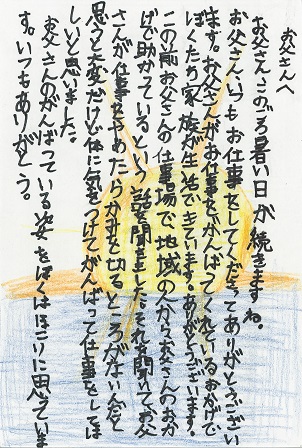 お父さんへ
お父さん、このごろ暑い日が続きますね。
お父さん、いつもお仕事をしてくださってありがとうござい
ます。お父さんがお仕事をがんばってくれているおかげで
ぼくたち家族が生活できています。ありがとうございます。
この前お父さんの仕事場で、地域の人からお父さんのおか
げで助かっているという話を聞きました。それを聞いてお父
さんが仕事をやめたらかみを切るところがないんだと
思うと大変だけど体に気をつけてがんばって仕事をしてほ
しいと思いました。
お父さんのがんばっている姿をぼくはほこりに思っていま
す。いつもありがとう。